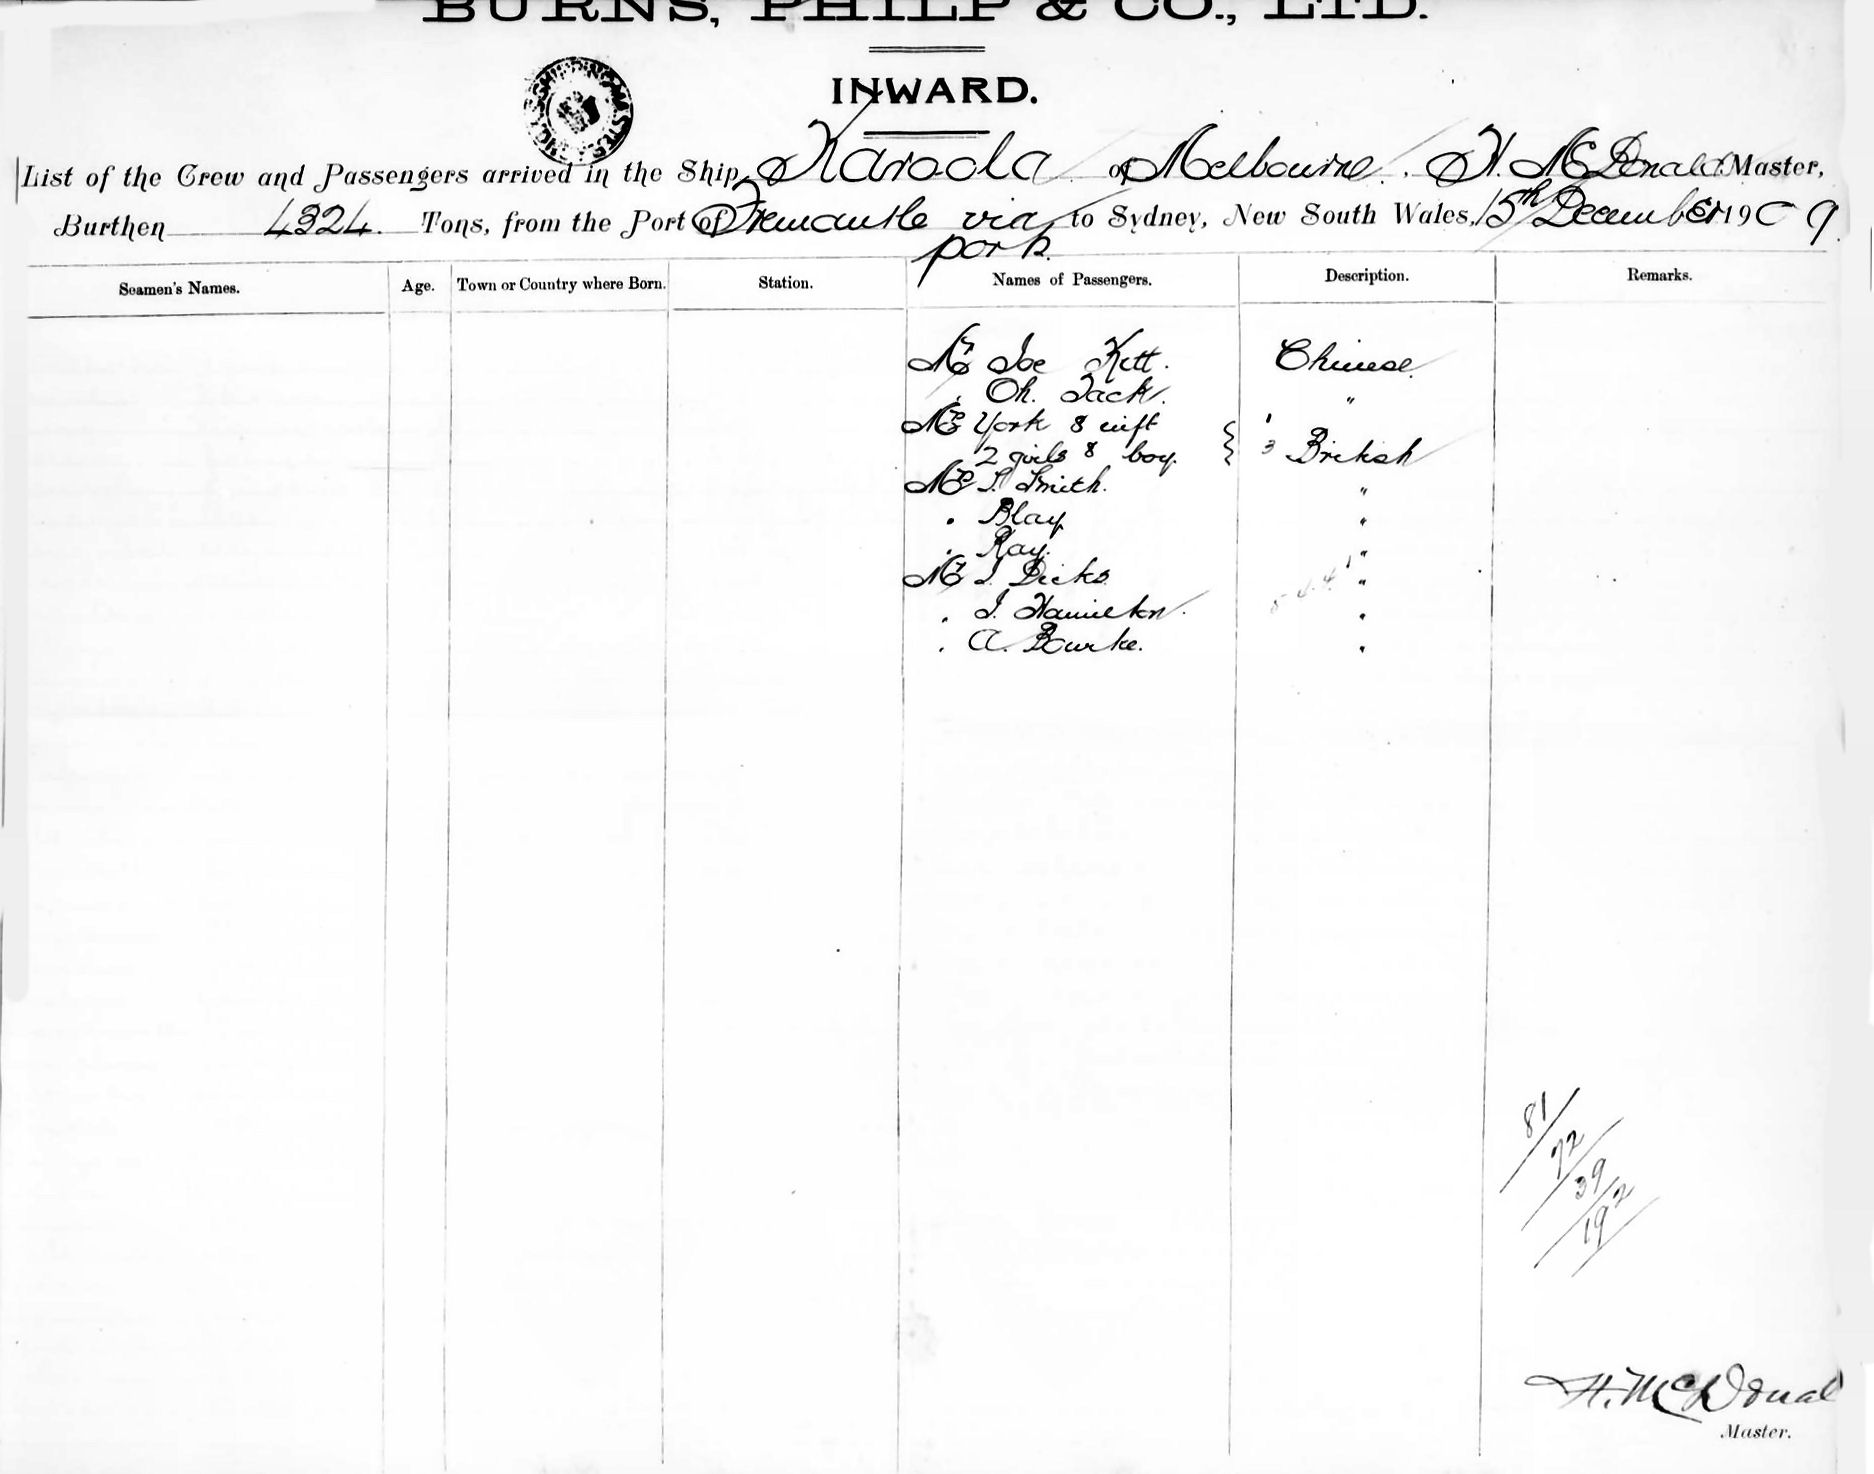 BURNS, PHILP & CO., LTD.
INWARD.
List of the Crew and Passengers arrived in the Ship Karoola of Melbourne. H. McDonald Master,
Burthen 4324. Tons, from the Port of Fremantle via to Sydney, New South Wales, 15th December 1909.
ports.
Seamen's Names. Age. Town or Country where Born. Station. Names of Passengers. Description. Remarks.
Mr Joe Kett. Chinese.
" Oh. Jack. "
Mr York & wife
2 girls & boy. } 3 British
Mr S. Smith. "
" Blay "
" Ray. "
Mr J. Dicks "
" J. Hamilton. "
" A. Bourke. "
81/
72/
39/
19/2
H. McDonal
Master.